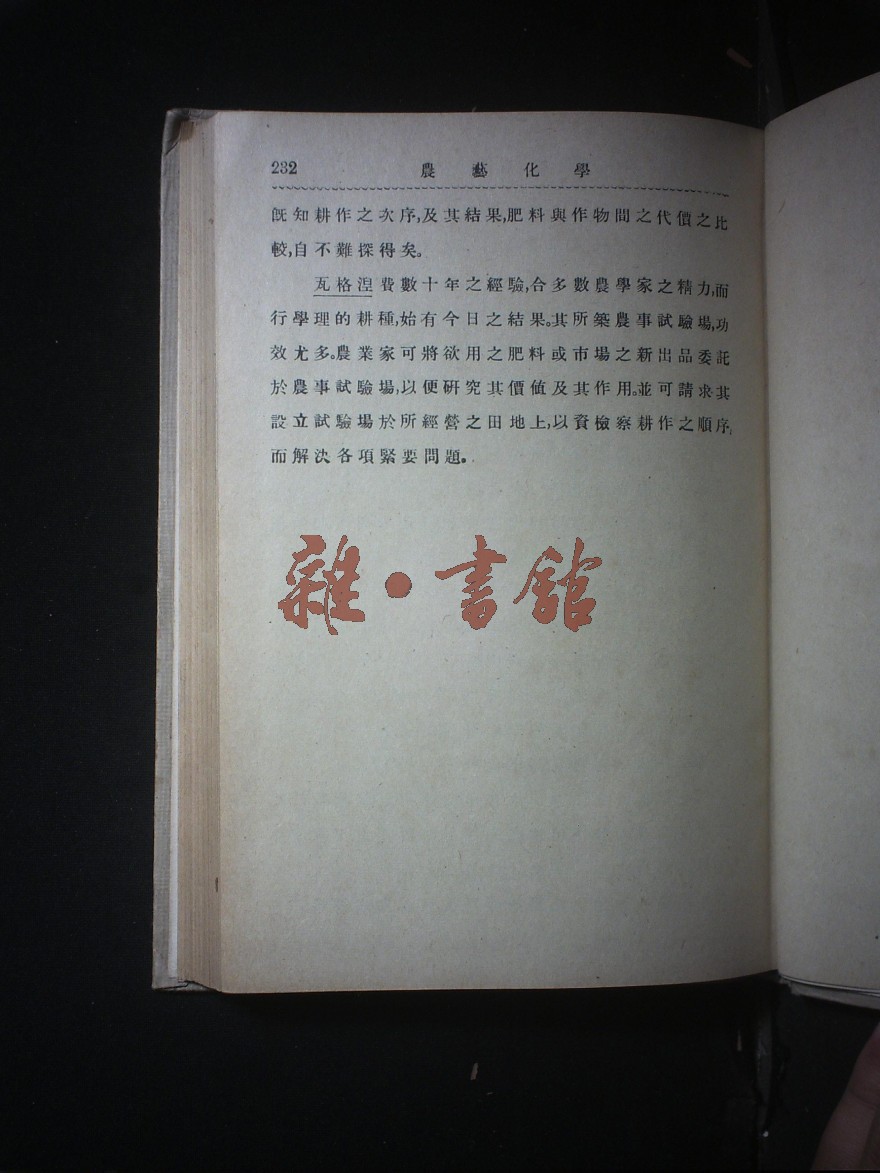 232 農藝化學
旣知耕作之次序,及其結果,肥料與作物間之代價之比
較,自不難探得矣。
瓦格涅費數十年之經驗,合多數農學家之精力,而
行學理的耕種,始有今日之結果。其所築農事試驗場,功
效尤多。農業家可將欲用之肥料或市場之新出品委託
於農事試驗場,以便研究其價値及其作用。並可請求其
設立試驗場於所經營之田地上,以資檢察耕作之順序,
而解決各項緊要問題。
雜·書館